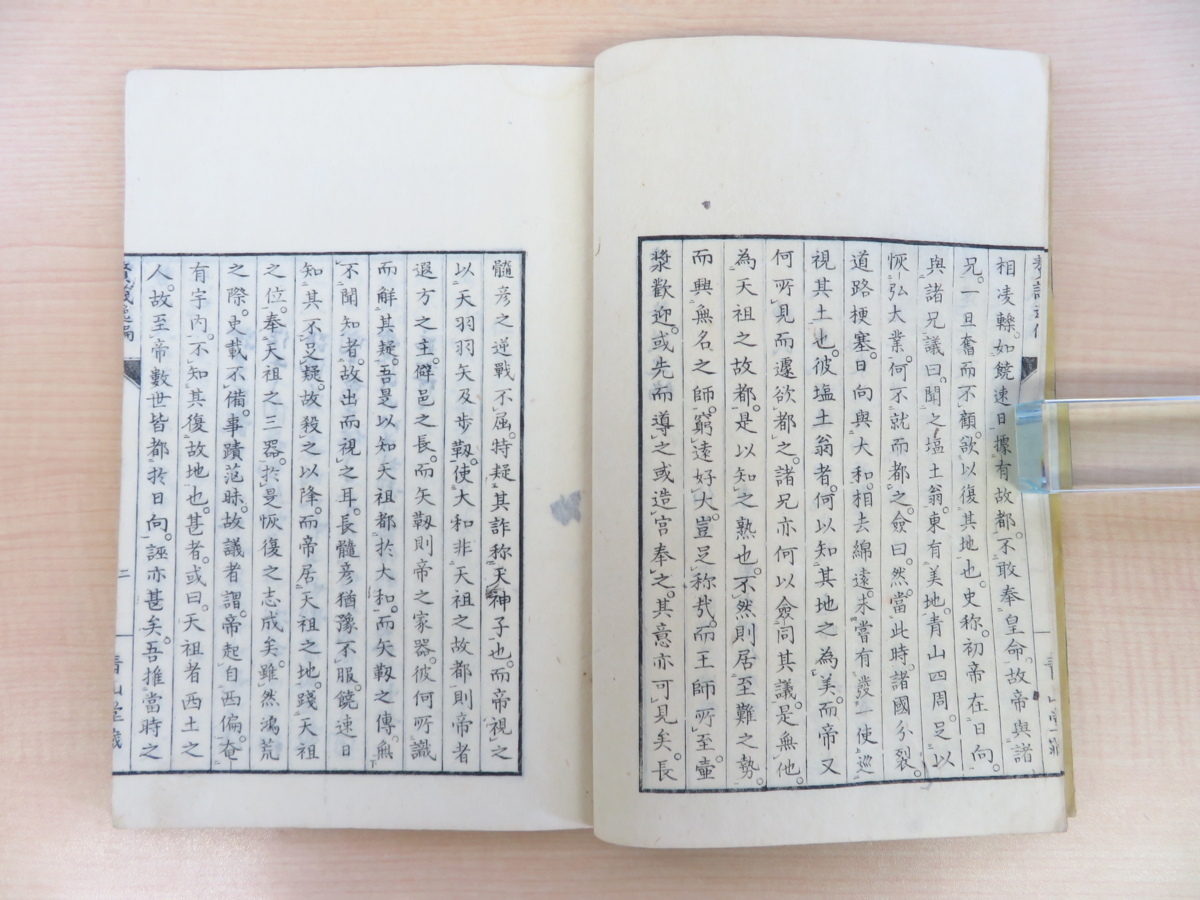 相凌轢。如饒速日、據有故都。不敢奉皇命。故帝與諸
兄。一旦奮而不顧。欲以復其地也。史称。初帝在日向。
與諸兄議曰。聞之塩土翁。東有美地。青山四周。足以
恢弘大業。何不就而都之。僉曰。然。當此時。諸國分裂。
道路梗塞。日向與大和。相去綿遠。未嘗有發一使巡
視其土也。彼塩土翁者。何以知其地之為美。而帝又
何所見而遽欲都之。諸兄亦何以僉同其議。是無他。
為天祖之故都。是以知之熟也。不然則居至難之勢。
而興無名之師。窮遠好大。豈足称哉。而王師所至。壷
漿歡迎。或先而導之。或造宮奉之。其意亦可見矣。長
髓彦之逆戰不屈。特疑其詐称天神子也。而帝視之
以天羽羽矢及步靱。使大和非天祖之故都。則帝者
遐方之主。僻邑之長。而矢靱則帝之家器。彼何所識
而解其疑。吾是以知天祖都於大和。而矢靱之傳。無
不聞知者。故出而視之耳。長髓彦猶豫不服。饒速日
知其不足疑。故殺之以降。而帝居天祖之地。踐天祖
之位。奉天祖之三器。於是恢復之志成矣。雖然鴻荒
之際。史載不備。事蹟茫昧。故議者謂。帝起自西偏。奄
有宇內。不知其復故地也。甚者。或曰。天祖者西土之
人。故至帝數世皆都於日向。誣亦甚矣。吾推當時之
二
青山堂藏